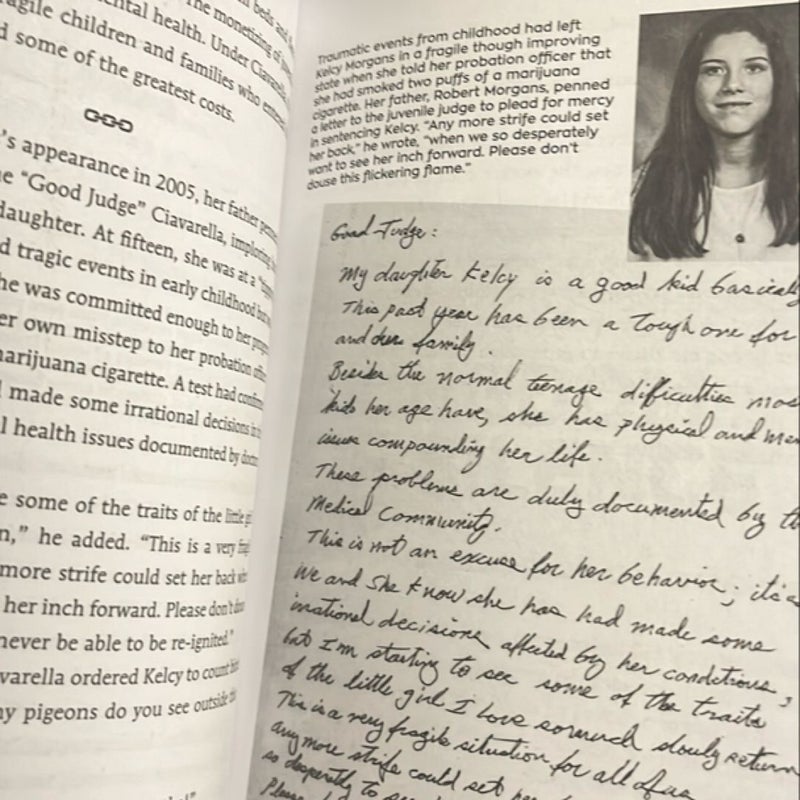 beds and
ental health. Under Ciavarella
agile children and families who
d some of the greatest costs.
's appearance in 2005, her father
e "Good Judge" Ciavarella, imploring
daughter. At fifteen, she was at a
d tragic events in early childhood
he was committed enough to her
er own misstep to her probation
marijuana cigarette. A test had
l made some irrational decisions
l health issues documented by
e some of the traits of the little
n," he added. "This is a very
more strife could set her back
her inch forward. Please don't
never be able to be re-ignited."
varella ordered Kelcy to count
y pigeons do you see outside
Traumatic events from childhood had left
Kelcy Morgans in a fragile though improving
state when she told her probation officer that
she had smoked two puffs of a marijuana
cigarette. Her father, Robert Morgans, penned
a letter to the juvenile judge to plead for mercy
in sentencing Kelcy. "Any more strife could set
her back," he wrote, "when we so desperately
want to see her inch forward. Please don't
douse this flickering flame."
Good Judge:
My daughter Kelcy is a good kid basically
This past year has been a tough one for
and her family.
Besides the normal teenage difficulties mos
kids her age have, she has physical and men
issues compounding her life.
These problems are duly documented by th
Medical Community.
This is not an excuse for her behavior; it's
We and she know she has had made some
irrational decisions affected by her conditions,
but I'm starting to see some of the traits
of the little girl I love so much slowly return
This is a very fragile situation for all of us
any more strife could set her
so desperately to see
Please